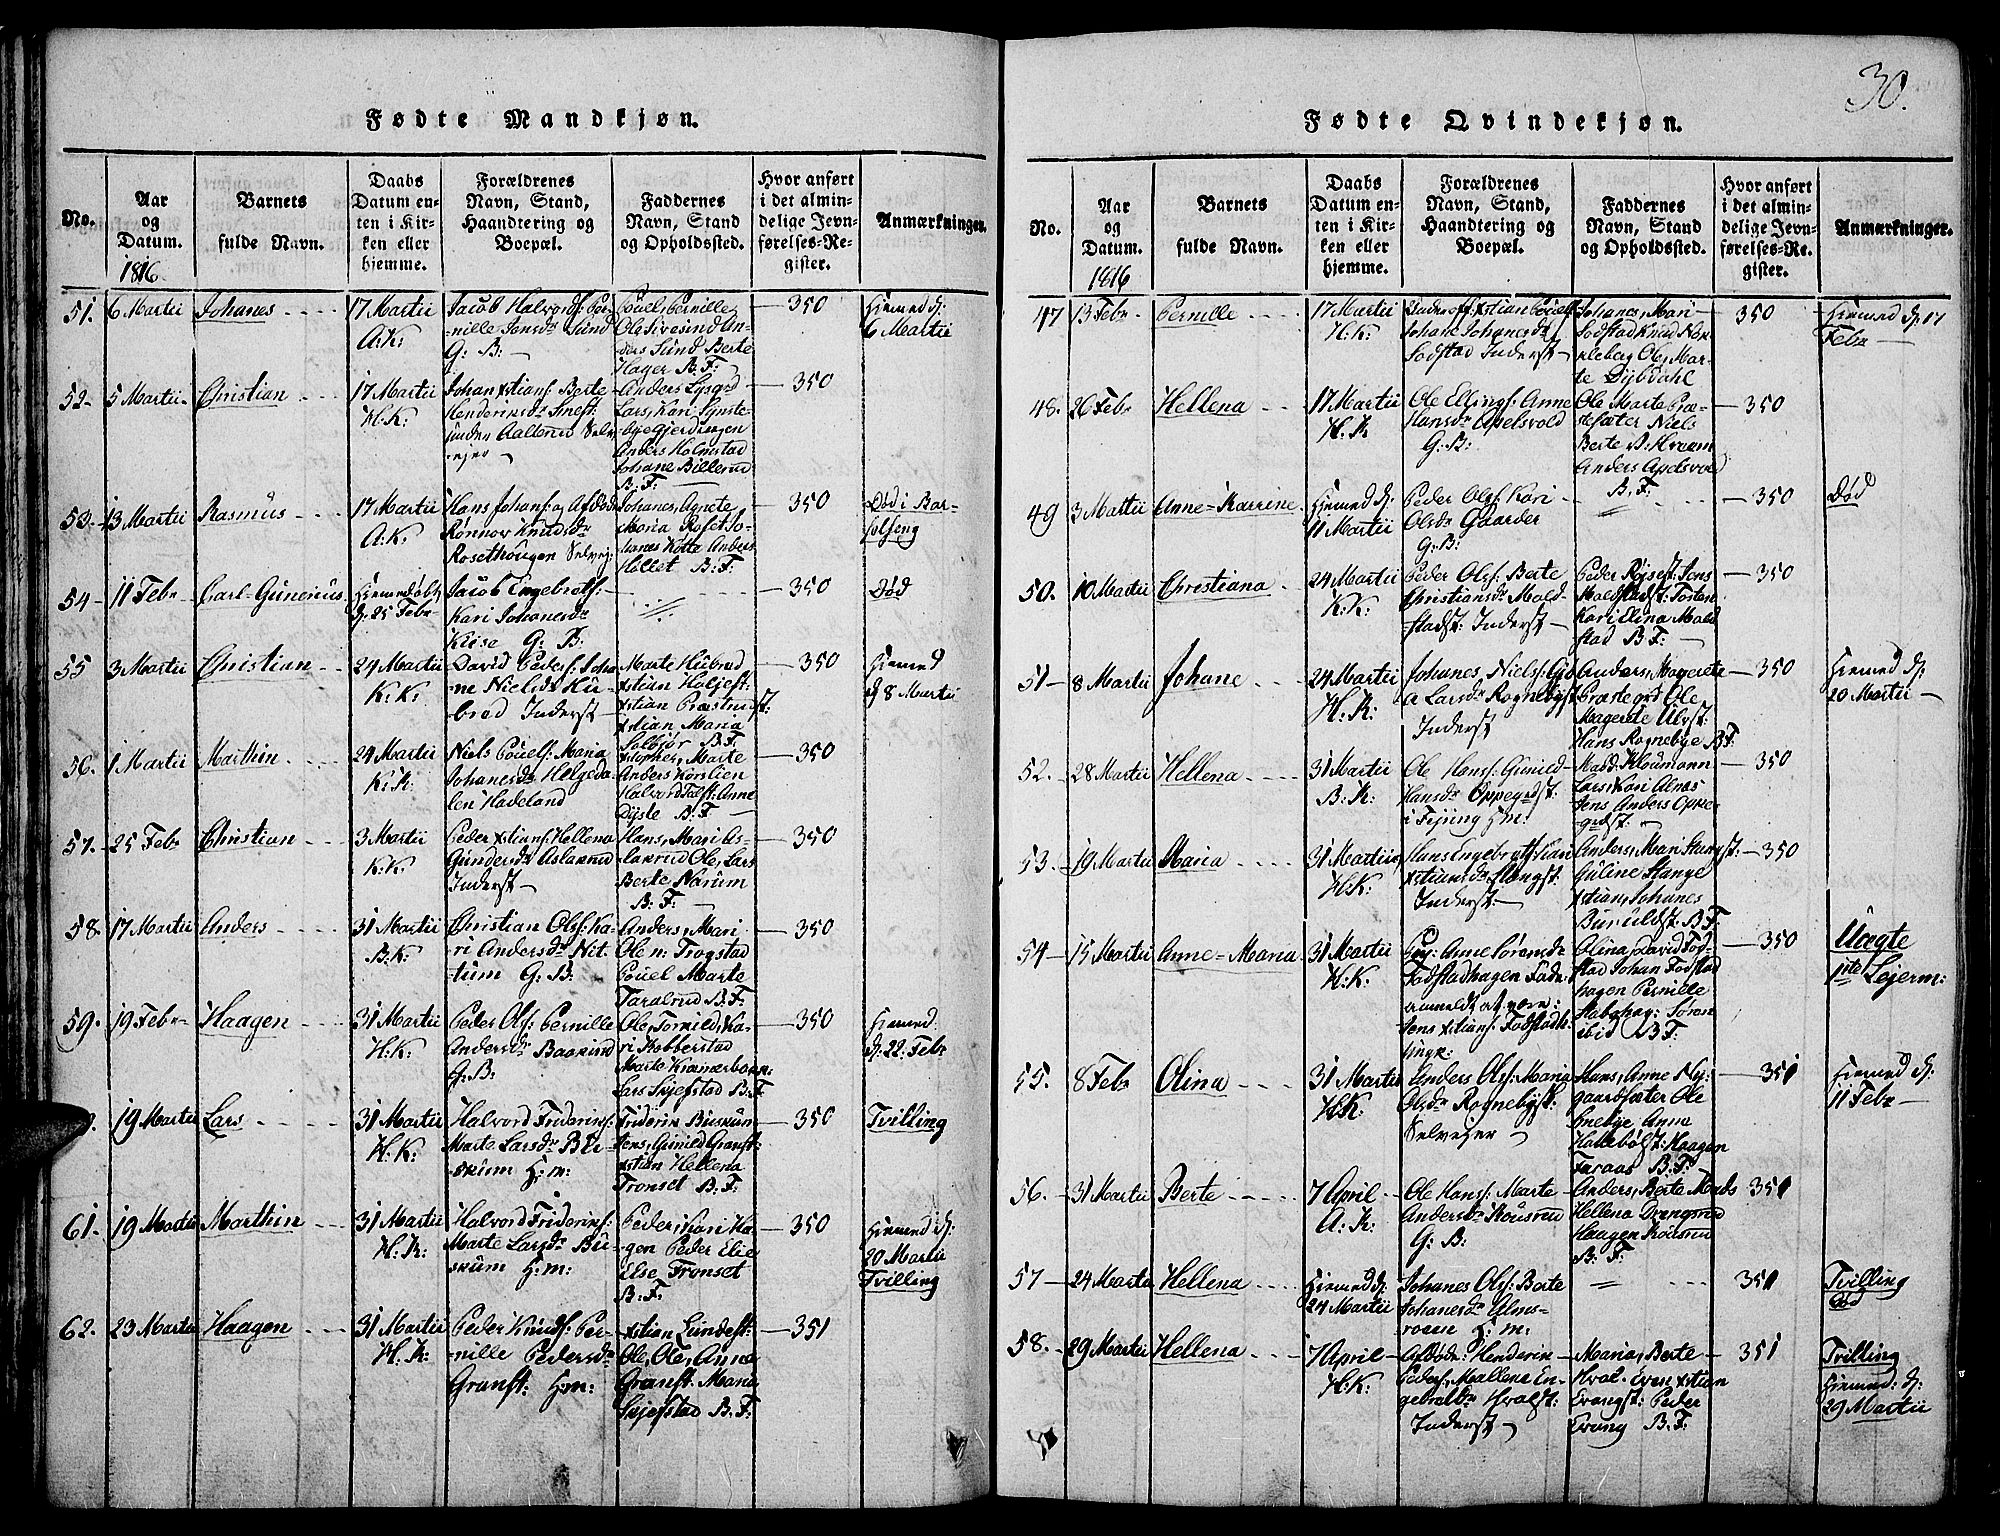 30.
Fødte Mandkjøn.
No.
Aar
og
Datum.
1816
Barnets
fulde Navn.
Daabs
Datum en-
ten i Kir-
ken eller
hjemme.
Forældrenes
Navn, Stand,
Haandtering og
Boepæl.
Faddernes
Navn, Stand
og Opholdssted.
Hvor anført
i det almin-
delige Jevn-
førelses-Re-
gister.
Anmærkninger.
51. 6 Martii Johanes 17 Martii
A:K:
Jacob Halvords: Per-
nille Jensdr Sund
G: B:
Pouel, Pernille
Ole Sivesind An-
ders Sund Berte
Hager B: F:
350
Hjemmed d:
6 Martii
52 5 Martii Christian 17 Martii
H:K:
Johan xstians: Berte
Anders Lysgrd
Lars, Kari
Anders Holmstad
Johane Billerud
B: F:
350
53 13 Martii Rasmus 17 Martii
A:K:
Hans Johans:
Rønnov Knudsdr
Rosethougen Selvej:
Johanes, Agnete
Maria Roset Jo-
hanes Kotte Anders
Hollet B: F:
350
Død i Bar-
selseng
54 11 Febr Carl-Gunerius
d: 25 Febr
Jacob Engebrets:
Kari Johanesdr
Kise G: B:
350
Død
55 3 Martii Christian 24 Martii
K:K:
David Peders: Joha-
ne Nielsdr Hu-
brod Inderst
Marte Hubrod
xtian
xtian
xtian Maria
Solbjør B: F:
350
d 8 Martii
56. 1 Martii Marthin 24 Martii
K:K:
Niels Pouels: Maria
Johanesdr Helgeda-
len Hadeland
Marte
Anders Korslien
Anne
Dyste B: F:
350
57. 25 Febr Christian 3 Martii
K:K:
Peder xtians: Hellena
Gundersdr Aslakrud
Inderst
Hans, Mari As-
lakrud Ole, Lars
Berte Narum
B: F:
350
58. 17 Martii Anders 31 Martii
B:K:
Christian Ols: Ka-
ri Andersdr Nit-
tum G: B:
Anders, Mari
Ole n: Trogstad
Pouel Marte
Taralrud B: F:
350
59. 19 Febr Haagen 31 Martii
H:K:
Peder Ols: Pernille
Andersdr Baarud
G: B:
Ole, Tomild, Ka-
ri Kobberstad
Lars Skjefstad B: F:
350
Hjemmed
d: 22 Febr
19 Martii Lars 31 Martii
H:K:
Halvord Frideriks:
Marte Larsdr Bu-
skum H:m:
Friderik Buskum
Jens, Gunild Granst:
xstian Hellena
Tronset B: F:
350
Tvilling
61. 19 Martii Marthin 31 Martii
H:K:
Halvord Frideriks:
Marte Larsdr Bu-
skum H:m:
Peder, Kari Ha-
gen Peder Elie
Else Tronset
B: F:
350
Hjemmed d:
20 Martii
Tvilling
62. 23 Martii Haagen 31 Martii
H:K:
Peder Knuds: Per-
nille Pedersdr
Granst: H:m:
xstian Lundest:
Ole, Ole, Anne
Granst: Maria
Skjefstad B: F:
351
Fødte Qvindekjøn.
No.
Aar
og
Datum.
1816
Barnets
fulde Navn.
Daabs
Datum en-
ten i Kir-
ken eller
hjemme.
Forældrenes
Navn, Stand,
Haandtering og
Boepæl.
Faddernes
Navn, Stand
og Opholdssted.
Hvor anført
i det almin-
delige Jevn-
førelses-Re-
gister.
Anmærkninger.
47 13 Febr Pernille 17 Martii
H:K:
Underoff: xstian Pouels:
Johane Johanesdr
Sodstad Inderst
Johanes, Mari
Sodstad Knud Nøk-
leberg Ole, Mar-
te Dybdahl
350
Hjemmed d: 17
Febr
48. 26 Febr Hellena 17 Martii
H:K:
Ole Ellings: Anne
Hansdr Apelsvold
G: B:
Ole Marte Præ-
stesæter Niels
Berte
Anders Apelsvold
B: F:
350
49 3 Martii Anne-Karine Hjemmed d:
11 Martii
Peder Ols: Kari
Olsdr Gaarder
G: B:
350
Død
50. 10 Martii Christiana 24 Martii
K:K:
Peder Ols: Berte
Christiansdr Mold-
stadst: Inderst:
Peder Røjsest: Jens
Moldstadst: Torsten
Kari Elina Mold
stad B: F:
350
51 8 Martii Johane 24 Martii
H:K:
Johanes Niels:
Larsdr Rognebyst
Inderst
Anders, Magrete
Præstegrd Ole
Magrete Ulvst:
Hans Rognebye B: F:
350
Hjemmed d:
20 Martii
52. 28 Martii Hellena 31 Martii
B:K:
Ole Hans: Gunild
Hansdr Oppegrdst:
H:m:
Mad: Kloumann
Lars, Kari Alnæs
Jens Anders Oppe-
grdst:
350
53. 19 Martii Maria 31 Martii
H:K:
Hans Engebrets: Kari
xtiansdr Stangst:
Inderst:
Anders, Mari Stangst:
Guline Stange
xtian, Johanes
B: F:
350
54 15 Martii Anne-Maria 31 Martii
H:K:
Pig: Anne Sørensdr
Fodstadhagen Fader
anmeldt at være:
Jens xstians: Fodstadh:
Ungk:
Olina, David Fod-
stad Johan Fodstad
hagen Pernille
Søren
B: F:
350
Uægte
1ste Lejerm:
55. 8 Febr Olina 31 Martii
H:K:
Anders Ols: Maria
Olsdr Rognebyst:
Selvejer
Hans, Anne Ny-
gaardsæter Ole
Anne
Haagen
Faraas B: F:
351
Hjemmed d:
11 Febr
56. 31 Martii Berte 7 April
A:K:
Ole Hans: Marte
Andersdr Kousrud
G: B:
Anders, Berte Mads
Hellena Drengsrud
Haagen Kousrud
B: F:
351
57 24 Martii Hellena Hjemmed d:
24 Martii
Johanes Ols: Berte
Johanesdr
H: m:
351
Tvilling
Død
58. 29 Martii Hellena 7 April
H:K:
Afdøde: Henderik
Peders: Mallena En-
gebretsdr Hvalst:
Inderst
Maria, Berte
Hval Even xstian
Evangst: Peder
Evang B: F:
351
Tvilling
Hjemmed: d:
29 Martii